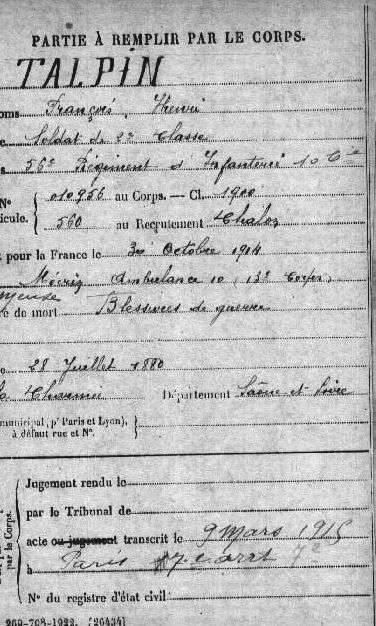 PARTIE À REMPLIR PAR LE CORPS.
TALPIN
oms François, Henri
Soldat de 2e Classe
56e Régiment d'Infanterie 10 Cie
No 010956 au Corps. — Cl. 1900
icule. 560 au Recrutement Chalon
pour la France le 30 Octobre 1914
Ambulance 10, 13e Corps,
Meuse
re de mort Blessures de guerre
28 Juillet 1880
Département Saône et Loire
municipal, pr Paris et Lyon),
à défaut rue et No.
par le Corps.
Jugement rendu le
par le Tribunal de
acte ou jugement transcrit le 9 Mars 1915
à Paris
No du registre d'état civil
269-708-1922. [26434]